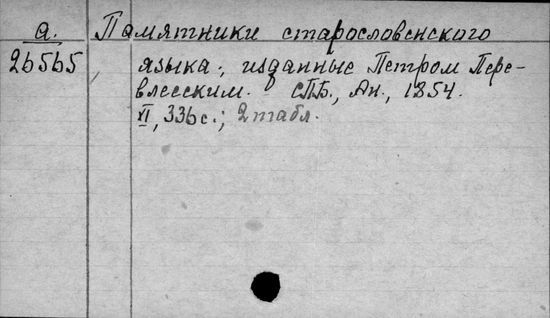 а. Памятники старословенского
26565 языка, изданные Петром Пере-
влесским. СПБ, Ан., 1854.
XI, 336 с.; 2 табл.